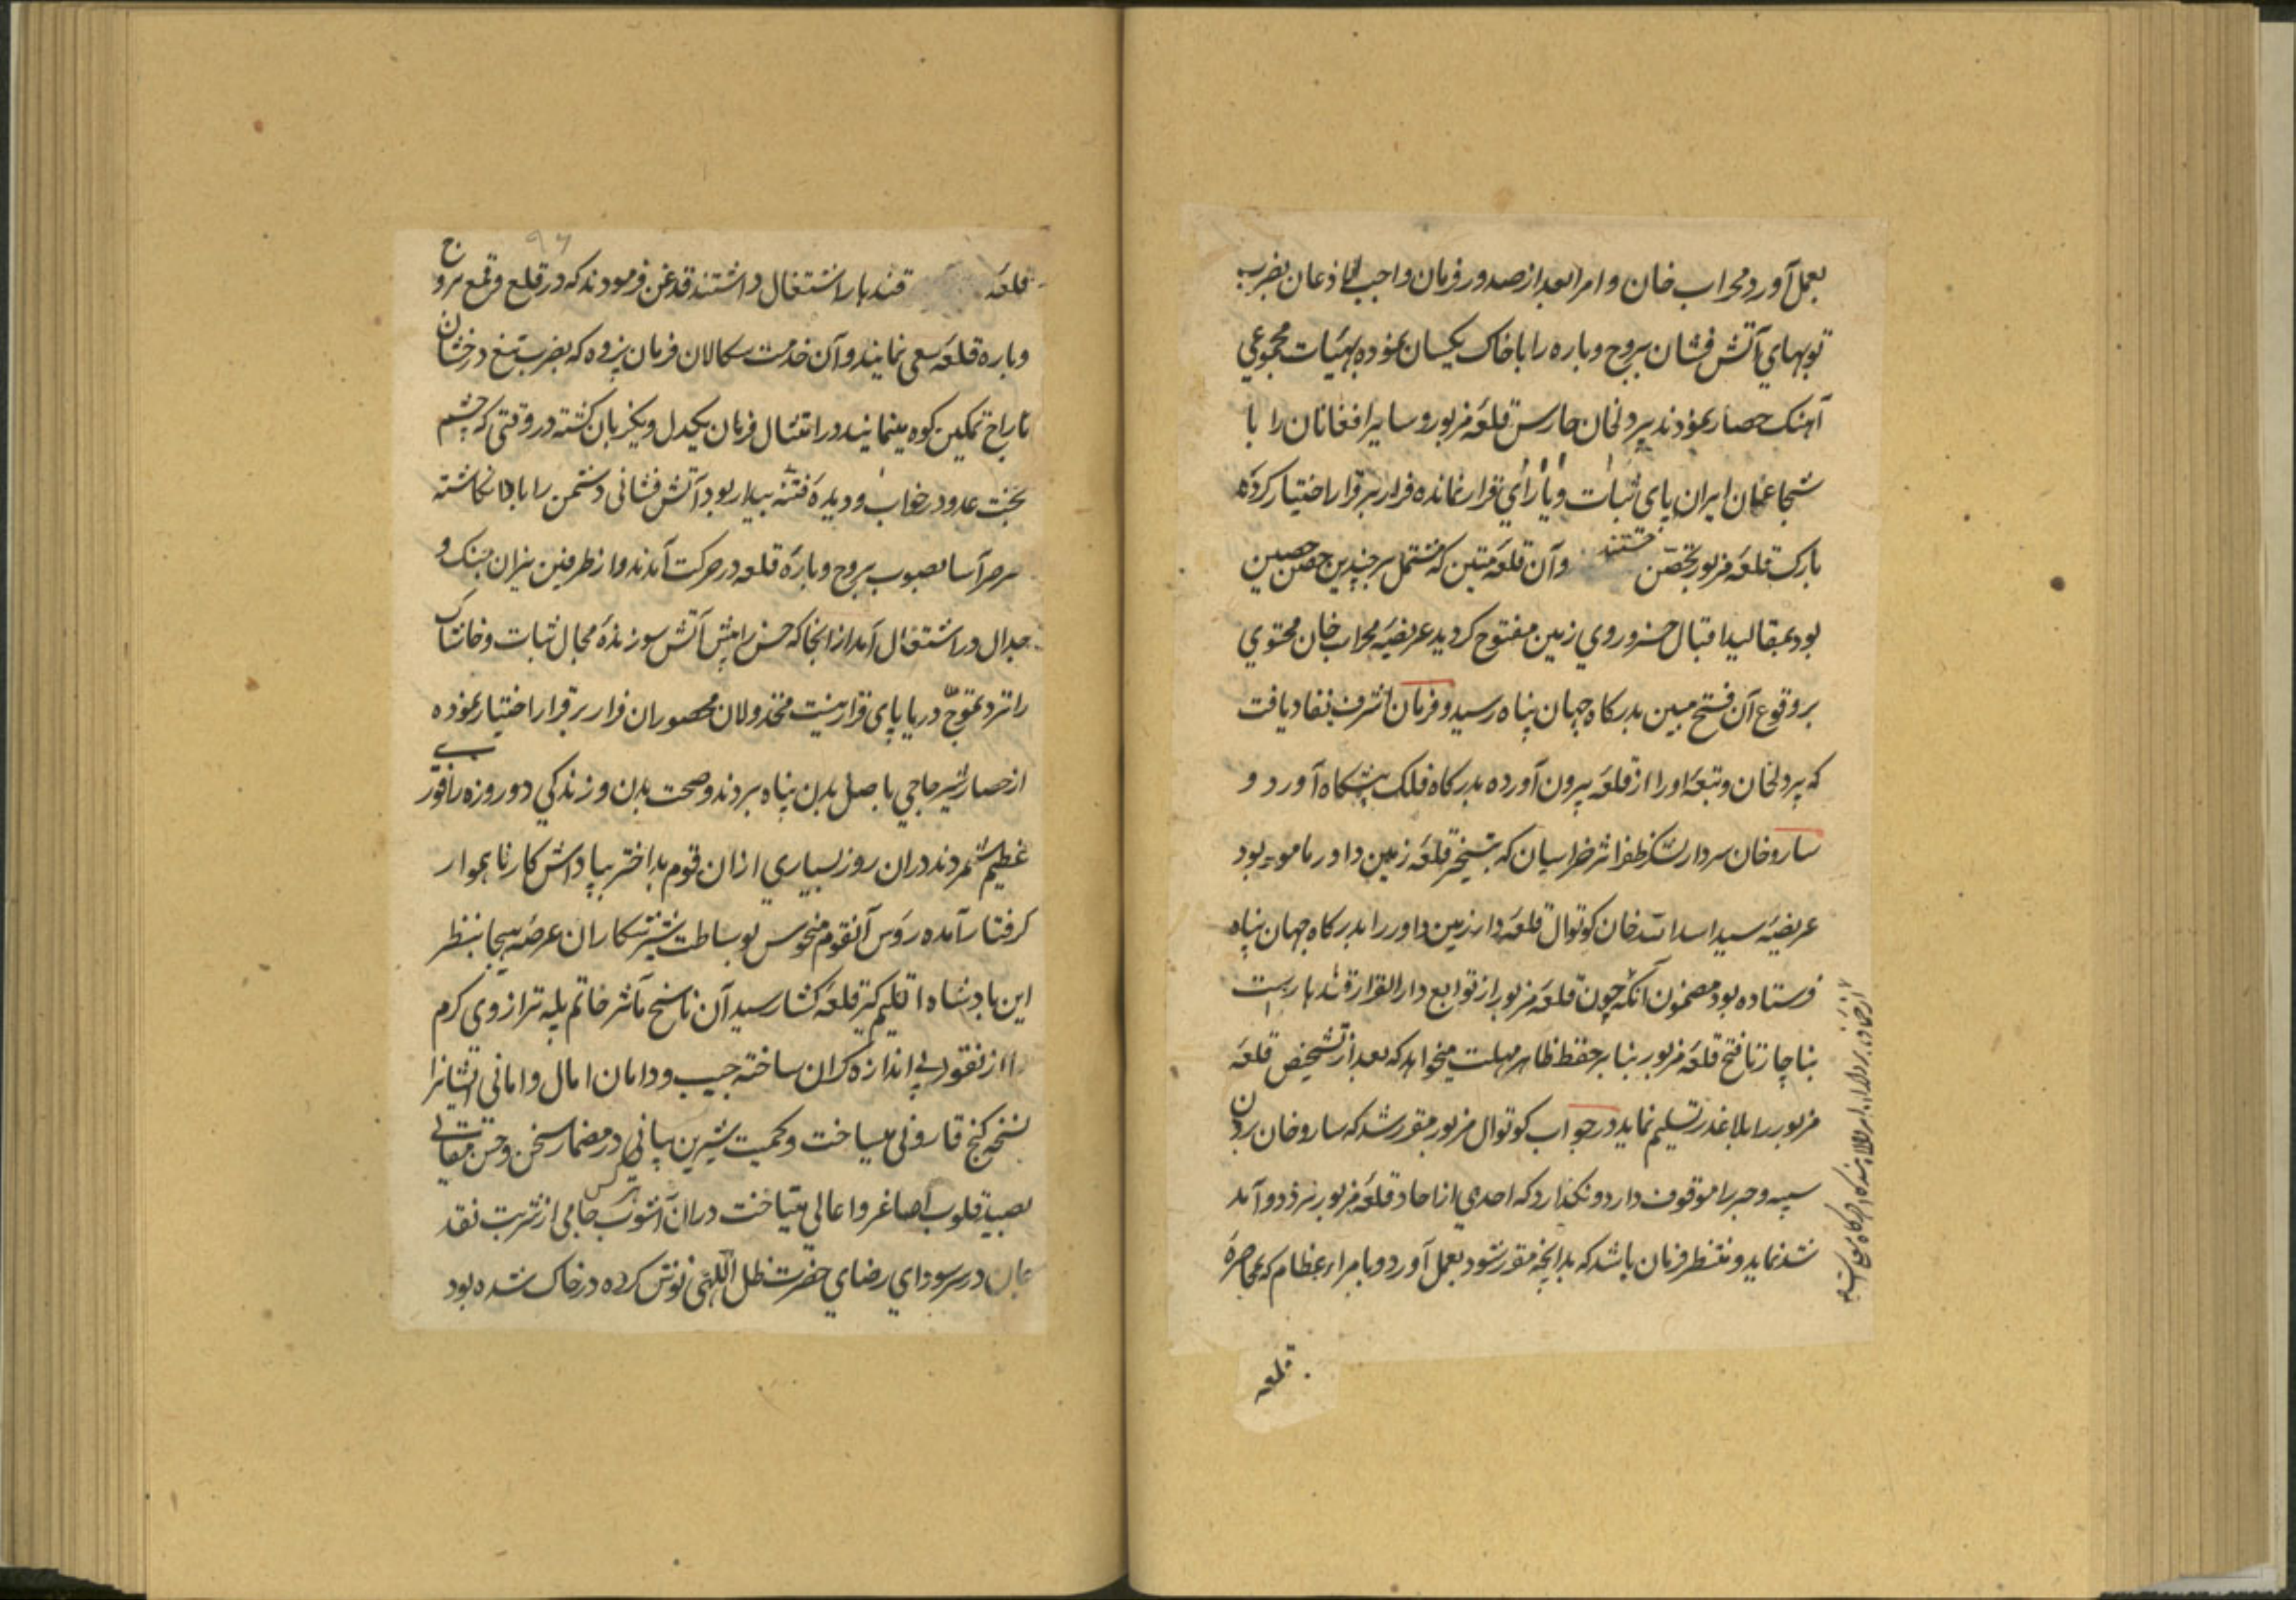 بعمل آورد محراب خان و امرا بعد از صدور فرمان واجب الاذعان بضرب
توپهای آتش فشان بروج و باره را با خاک یکسان نموده بهیئات مجموعی
آهنک حصار نمودند پردلخان حارس قلعه مزبور و سایر افغانان را با
شجاعان ایران پای ثبات و یارای قرار نمانده فرار بر قرار اختیار کرده
بارک قلعه مزبور تحصن جستند و آن قلعه متین که مشتمل بر چندین حصن حصین
بود بمقالید اقبال خسرو روی زمین مفتوح کردید عریضه محراب خان محتوی
بر وقوع آن فتح مبین بدرکاه جهان پناه رسید و فرمان اشرف نفاد یافت
که پردلخان و تبعه او را از قلعه بیرون آورده بدرکاه فلک پیشکاه آورد و
ساروخان سردار لشکر ظفر اثر خراسان که بتسخیر قلعه زمین داور مامور بود
عریضه سید اسدالله خان کوتوال قلعه دار زمین داور را بدرکاه جهان پناه
فرستاده بود مضمون آنکه چون قلعه مزبور از توابع دار القرار قندهار است
بناچار تا فتح قلعه مزبور بنا بر حفظ ظاهر مهلت میخواهد که بعد از تشخیص قلعه
مزبور را بلا عذر تسلیم نماید در جواب کوتوال مزبور مقرر شد که ساروخان بردن
سیبه و جر را موقوف دارد و نکذارد که احدی از احاد قلعه مزبور نردد و آمد
شد نماید و منتظر فرمان باشد که بدانچه مقرر شود بعمل آورد و بامراء عظام که بمحاصره
قلعه
۹۶
قلعه قندهار اشتغال داشتند قدغن فرمودند که در قلع و قمع بروج
و باره قلعه سعی نمایند و آن خدمت سکالان فرمان پژوه که بضرب تیغ درخشان
تاراج تمکین کوه مینمایند در امتثال فرمان یکدل و یکزبان کشته در وقتی که چشم
بخت عدو در خواب و دیده فتنه بیدار بود آتش فشانی دشمن را باد انکاشته
صرصر آسا بصوب بروج و باره قلعه در حرکت آمدند و از طرفین نیران جنک و
جدال در اشتعال آمد از انجا که خس را پیش آتش سوزنده مجال ثبات و خاشاک
را نزد تموج دریا پای قرار نیست مخذولان محصوران فرار بر قرار اختیار نموده
از حصار شیر حاجی باصل بدن پناه بردند و صحت بدن و زندکی دو روزه را فوزی
عظیم شمردند دران روز بسیاری ازان قوم بد اختر بپاداش کار ناهموار
کرفتار آمده رؤس آنقوم منحوس بوساطت شیر شکاران عرصه هیجا بنظر
این پادشاه اقلیم کیر قلعه کشا رسید آن ناسخ مآثر خاتم پله ترازوی کرم
را از نقود بی اندازه کران ساخته جیب و دامان امال و امانی ایشانرا
نسخه کنج قارونی میساخت و کمیت شیرین بیانی در مضمار سخن و حسن مقالی
بصید قلوب اصاغر و اعالی میتاخت دران آشوب هر کس جامی از شربت نقد
جان در سر سودای رضای حضرت ظل اللهی نوش کرده در خاک شده بود